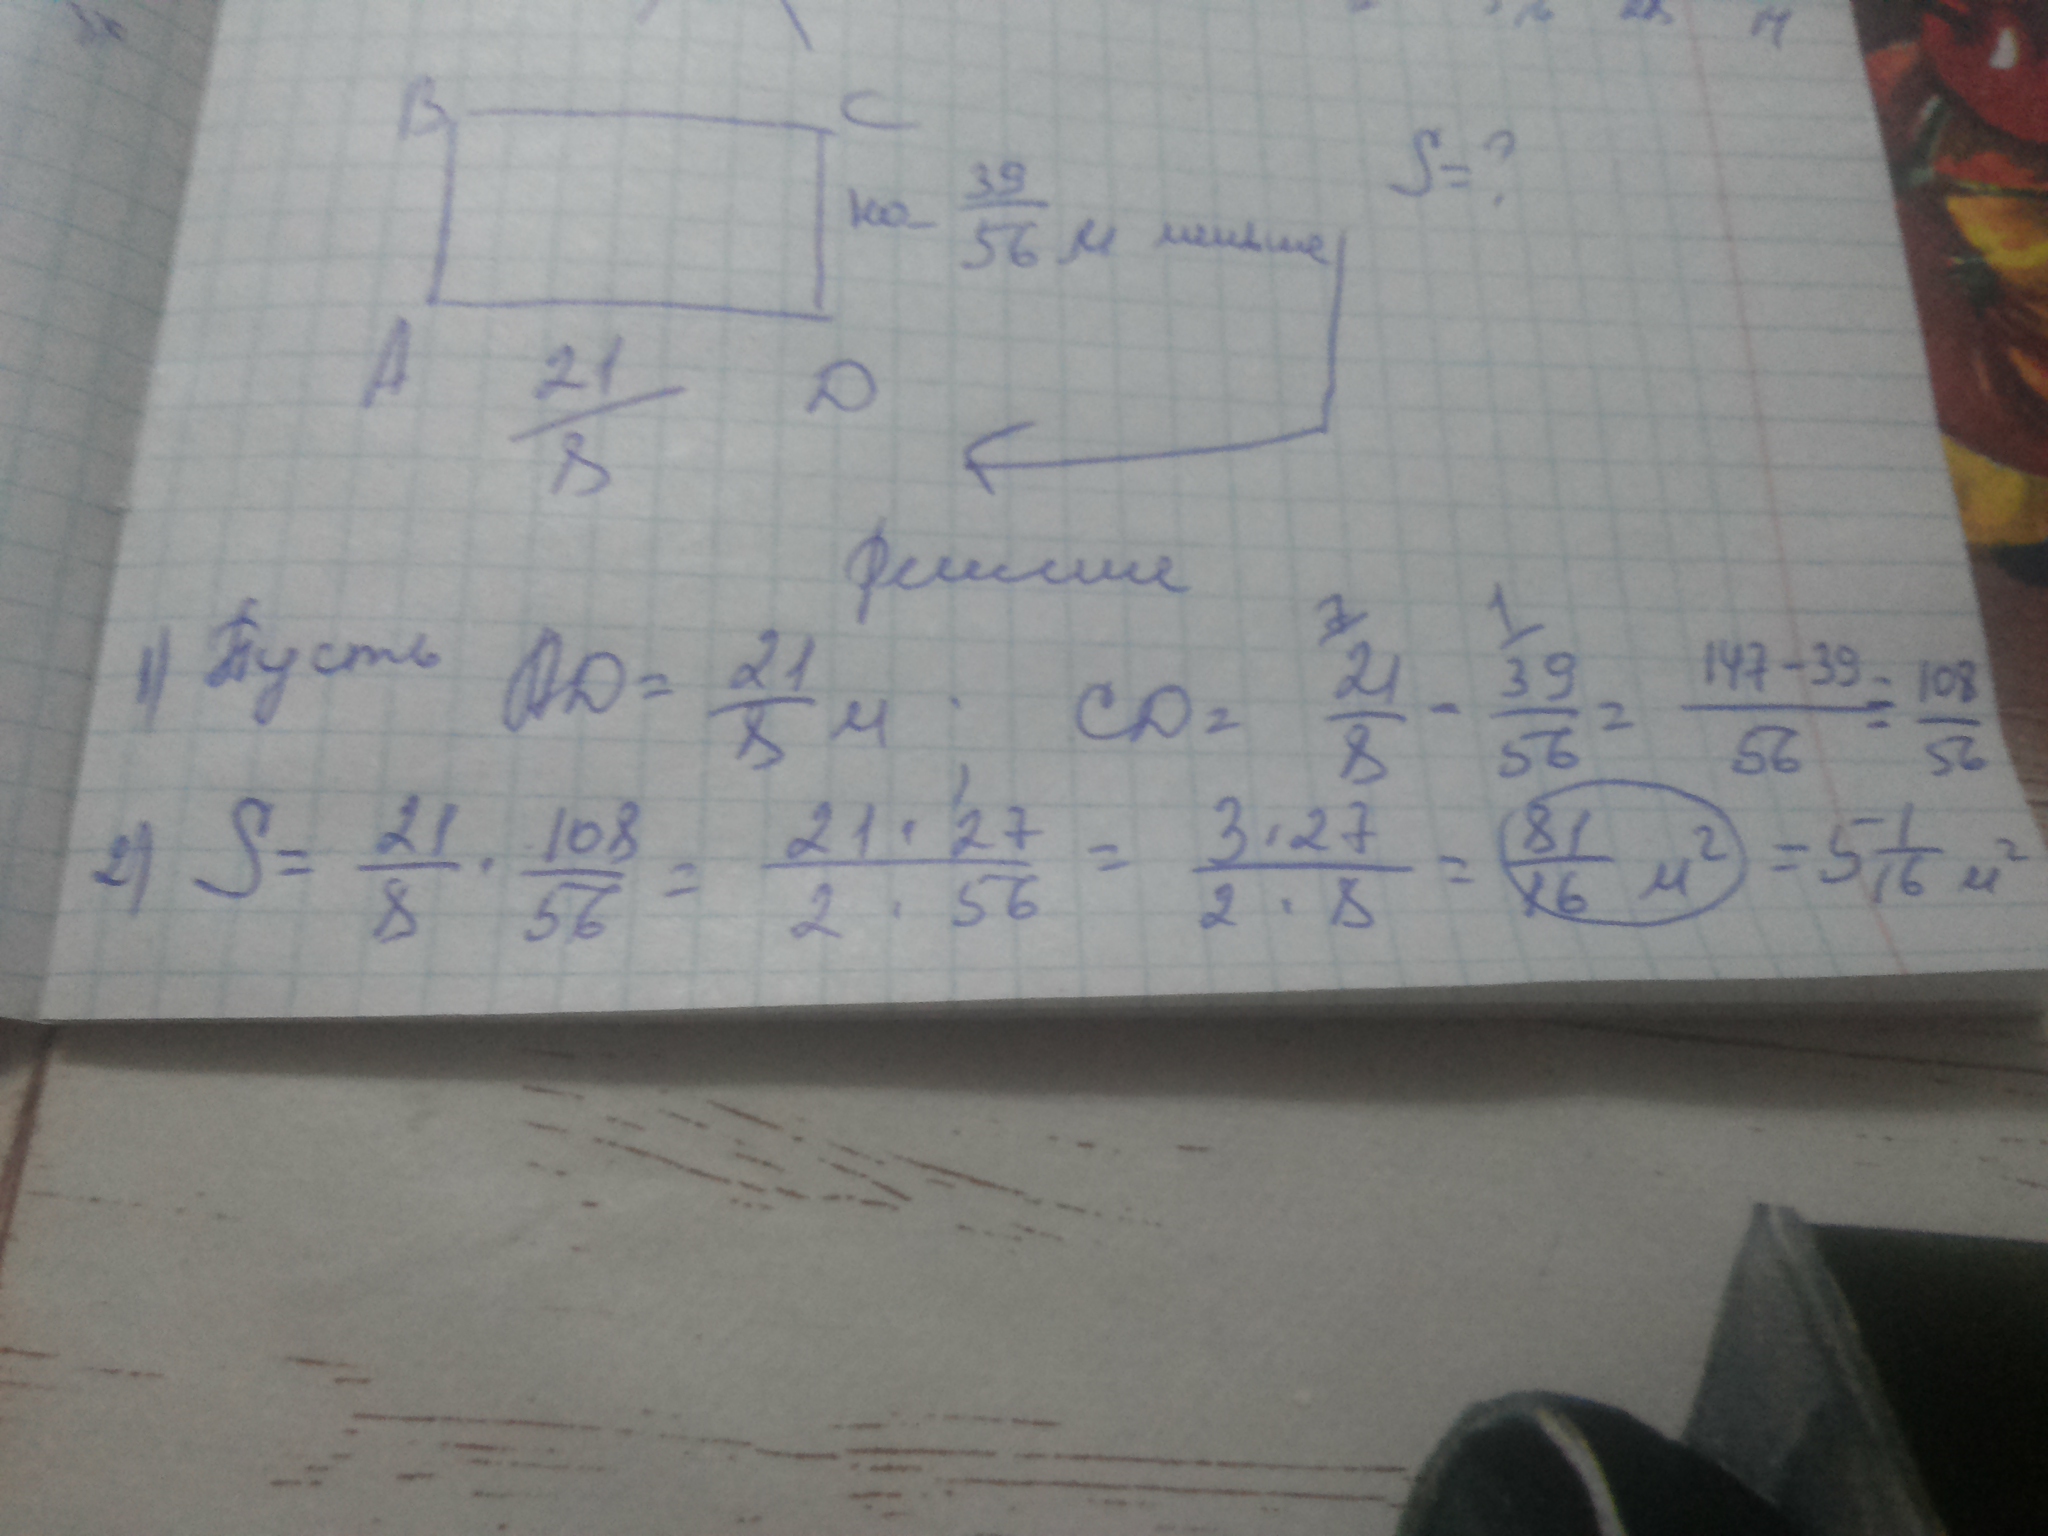 B C
на 39/56 м меньше
S=?
A 21/8 D
Решение
1) Пусть AD = 21/8 м CD = 21/8 - 39/56 = 147-39/56 = 108/56
2) S = 21/8 · 108/56 = 21·27/2·56 = 3·27/2·8 = 81/16 м² = 5 1/16 м²